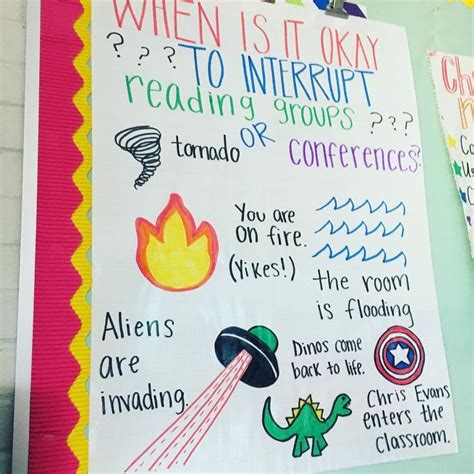 WHEN IS IT OKAY
? ? ? TO INTERRUPT
reading groups ? ? ?
OR
tornado
conferences?
You are
on fire.
(Yikes!)
the room
is flooding
Aliens
are
invading.
Dinos come
back to life.
Chris Evans
enters the
classroom.